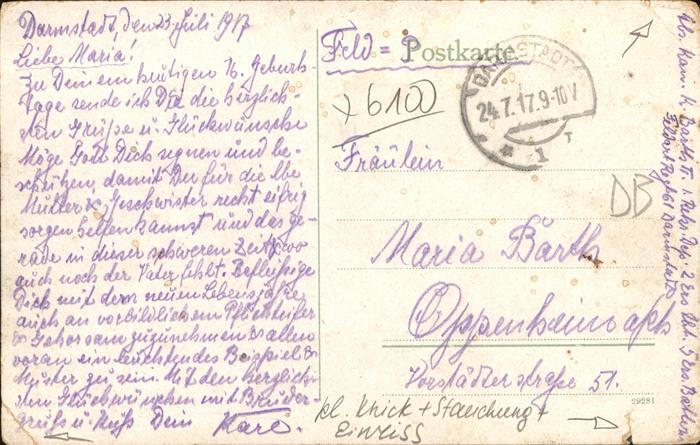 Darmstadt, den 23. Juli 1917
Liebe Maria!
Zu Deinem heutigen 16. Geburts-
tage sende ich Dir die herzlich-
sten Grüße u. Glückwünsche
Möge Gott Dich segnen und be-
schützen, damit Du für die lbe
Mutter & Geschwister recht eifrig
sorgen helfen kannst und das ge-
rade in dieser schweren Zeit, wo
auch noch der Vater fehlt. Befleißige
Dich mit dem neuen Lebensjahre
auch an vorbildlichem Pflichteifer
& Gehorsam zuzunehmen & allen
voran ein leuchtendes Beispiel &
Muster zu sein. Mit den herzlich-
sten Glückwünschen mit Brüder-
gruß u. Kuß Dein Karl.
Feld = Postkarte
DARMSTADT
24.7.17.9-10V
* 1 T
6100
Fräulein
DB
Maria Barth
Oppenheim a/Rh
Vorstädterstraße 51.
29281
kl. Knick + Stauchung +
Einriss
Abs. Kan. K. Barth II.
Darmstadt